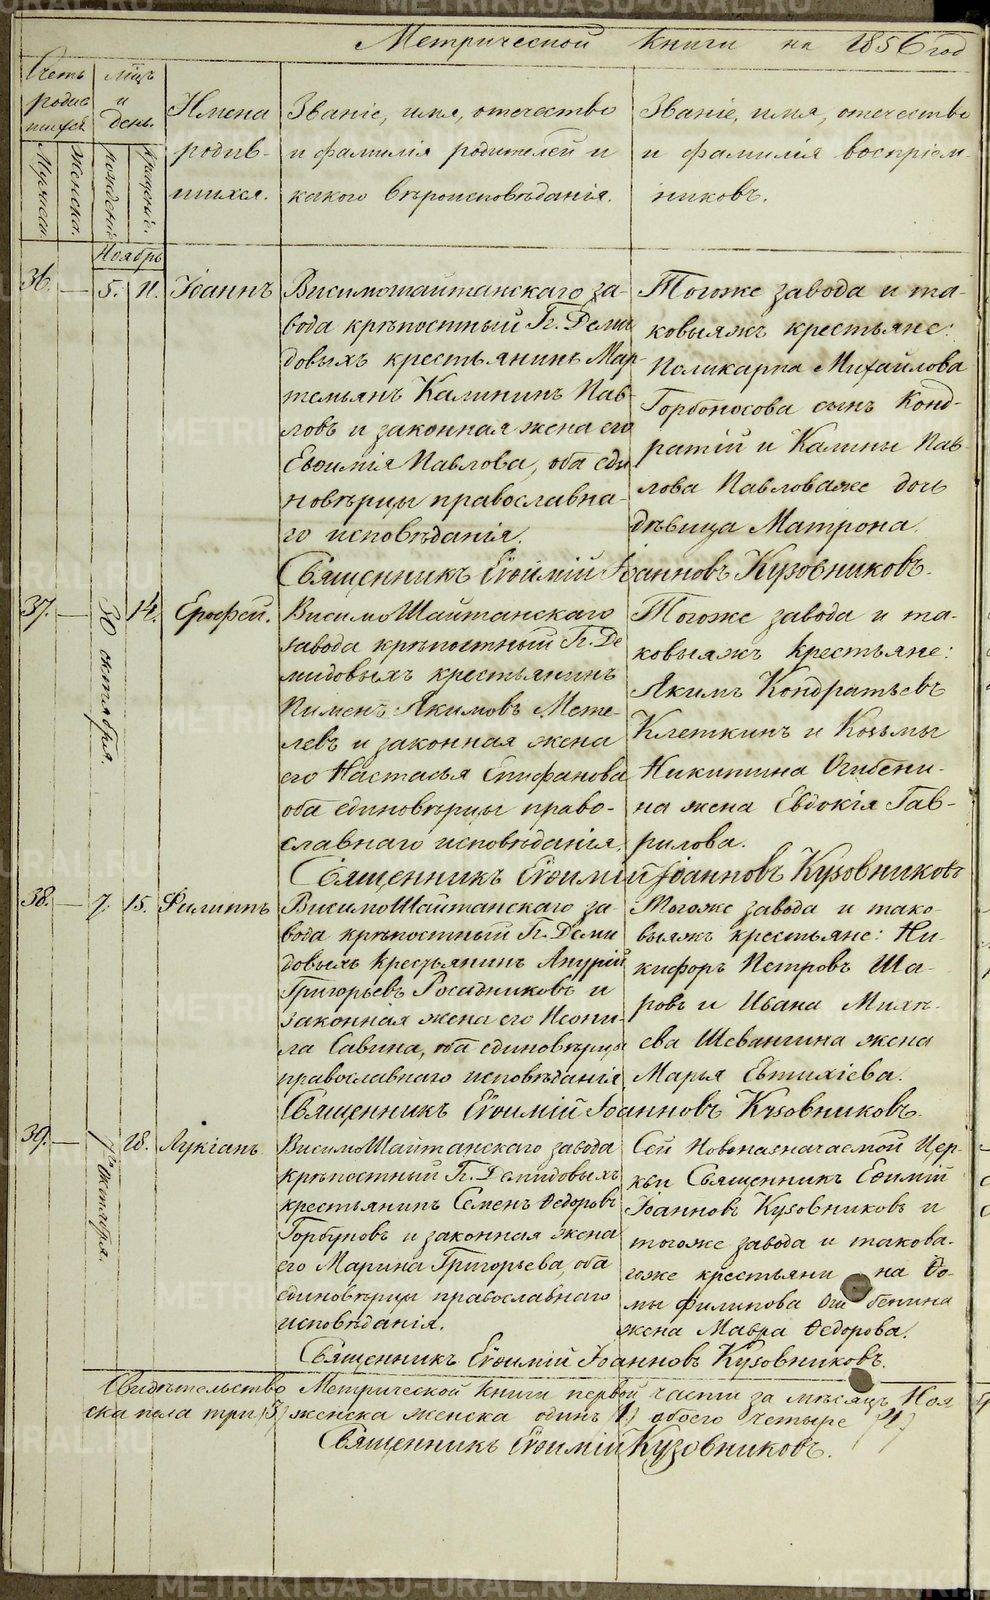 Метрической книги на 1856 год
Счетъ родив шихся
Мужеска.
Женска.
Мѣсяцъ и день.
рожденія
крещенія.
Имена
родив-
шихся.
Званіе, имя, отечество
и фамилія родителей и
какого вѣроисповѣданія.
Званіе, имя, отечество
и фамилія воспріем-
никовъ.
Ноябрь
36. — 5. 11. Іоаннъ
Висимошайтанскаго за-
вода крѣпостный Гг. Деми
довыхъ крестьянинъ Мар-
темьянъ Калининъ Пав-
ловъ и законная жена его
Евѳимія Павлова, оба еди
новѣрцы православна-
го исповѣданія.
Тогоже завода и та-
ковыяжъ крестьяне:
Поликарпа Михайлова
Горбоносова сынъ Конд-
ратій и Калины Пав-
лова Павловаже дочь
дѣвица Матрона.
Священникъ Евѳимій Іоанновъ Кузовниковъ.
37. — 30 октября. 14. Ерофей.
ВисимоШайтанскаго
завода крѣпостный Гг. Де
мидовыхъ крестьянинъ
Пименъ Якимовъ Мете-
левъ и законная жена
его Настасья Епифанова
оба единовѣрцы право-
славнаго исповѣданія.
Тогоже завода и та-
ковыяжъ крестьяне:
Якимъ Кондратьевъ
Клеткинъ и Козьмы
Никитина Огибени-
на жена Евдокія Гав-
рилова.
Священникъ Евѳимій Іоанновъ Кузовниковъ
38. — 7. 15. Филиппъ
ВисимоШайтанскаго за
вода крѣпостный Гг. Деми
довыхъ крестьянинъ Анурій
Григорьевъ Росадниковъ и
законная жена его Неони-
ла Савина, оба единовѣрцы
православнаго исповѣданія
Тогоже завода и тако-
выяжъ крестьяне: Ни-
кифоръ Петровъ Ша-
ровъ и Ивана Михѣ-
ева Шевангина жена
Марья Евтихіева.
Священникъ Евѳимій Іоанновъ Кузовниковъ.
39. — октября. 28. Лукіанъ
ВисимоШайтанскаго завода
крѣпостный Гг. Демидовыхъ
крестьянинъ Семенъ Ѳедоровъ
Горбуновъ и законная жена
его Марина Григорьева, оба
единовѣрцы православнаго
исповѣданія.
Сей Новоназначаемой Цер-
кви Священникъ Евѳимій
Іоанновъ Кузовниковъ и
тогоже завода и такова-
гоже крестьяни на Ѳо-
мы Филипова Оги бенина
жена Мавра Ѳедорова.
Священникъ Евѳимій Іоанновъ Кузовниковъ.
Свидѣтельство Метрической книги первой части за мѣсяцъ Ноя
ска пола три (3) женска женска одинъ (1) обоего четыре (4)
Священникъ Евѳимій Кузовниковъ.
METRIKI.GASO-URAL.RU